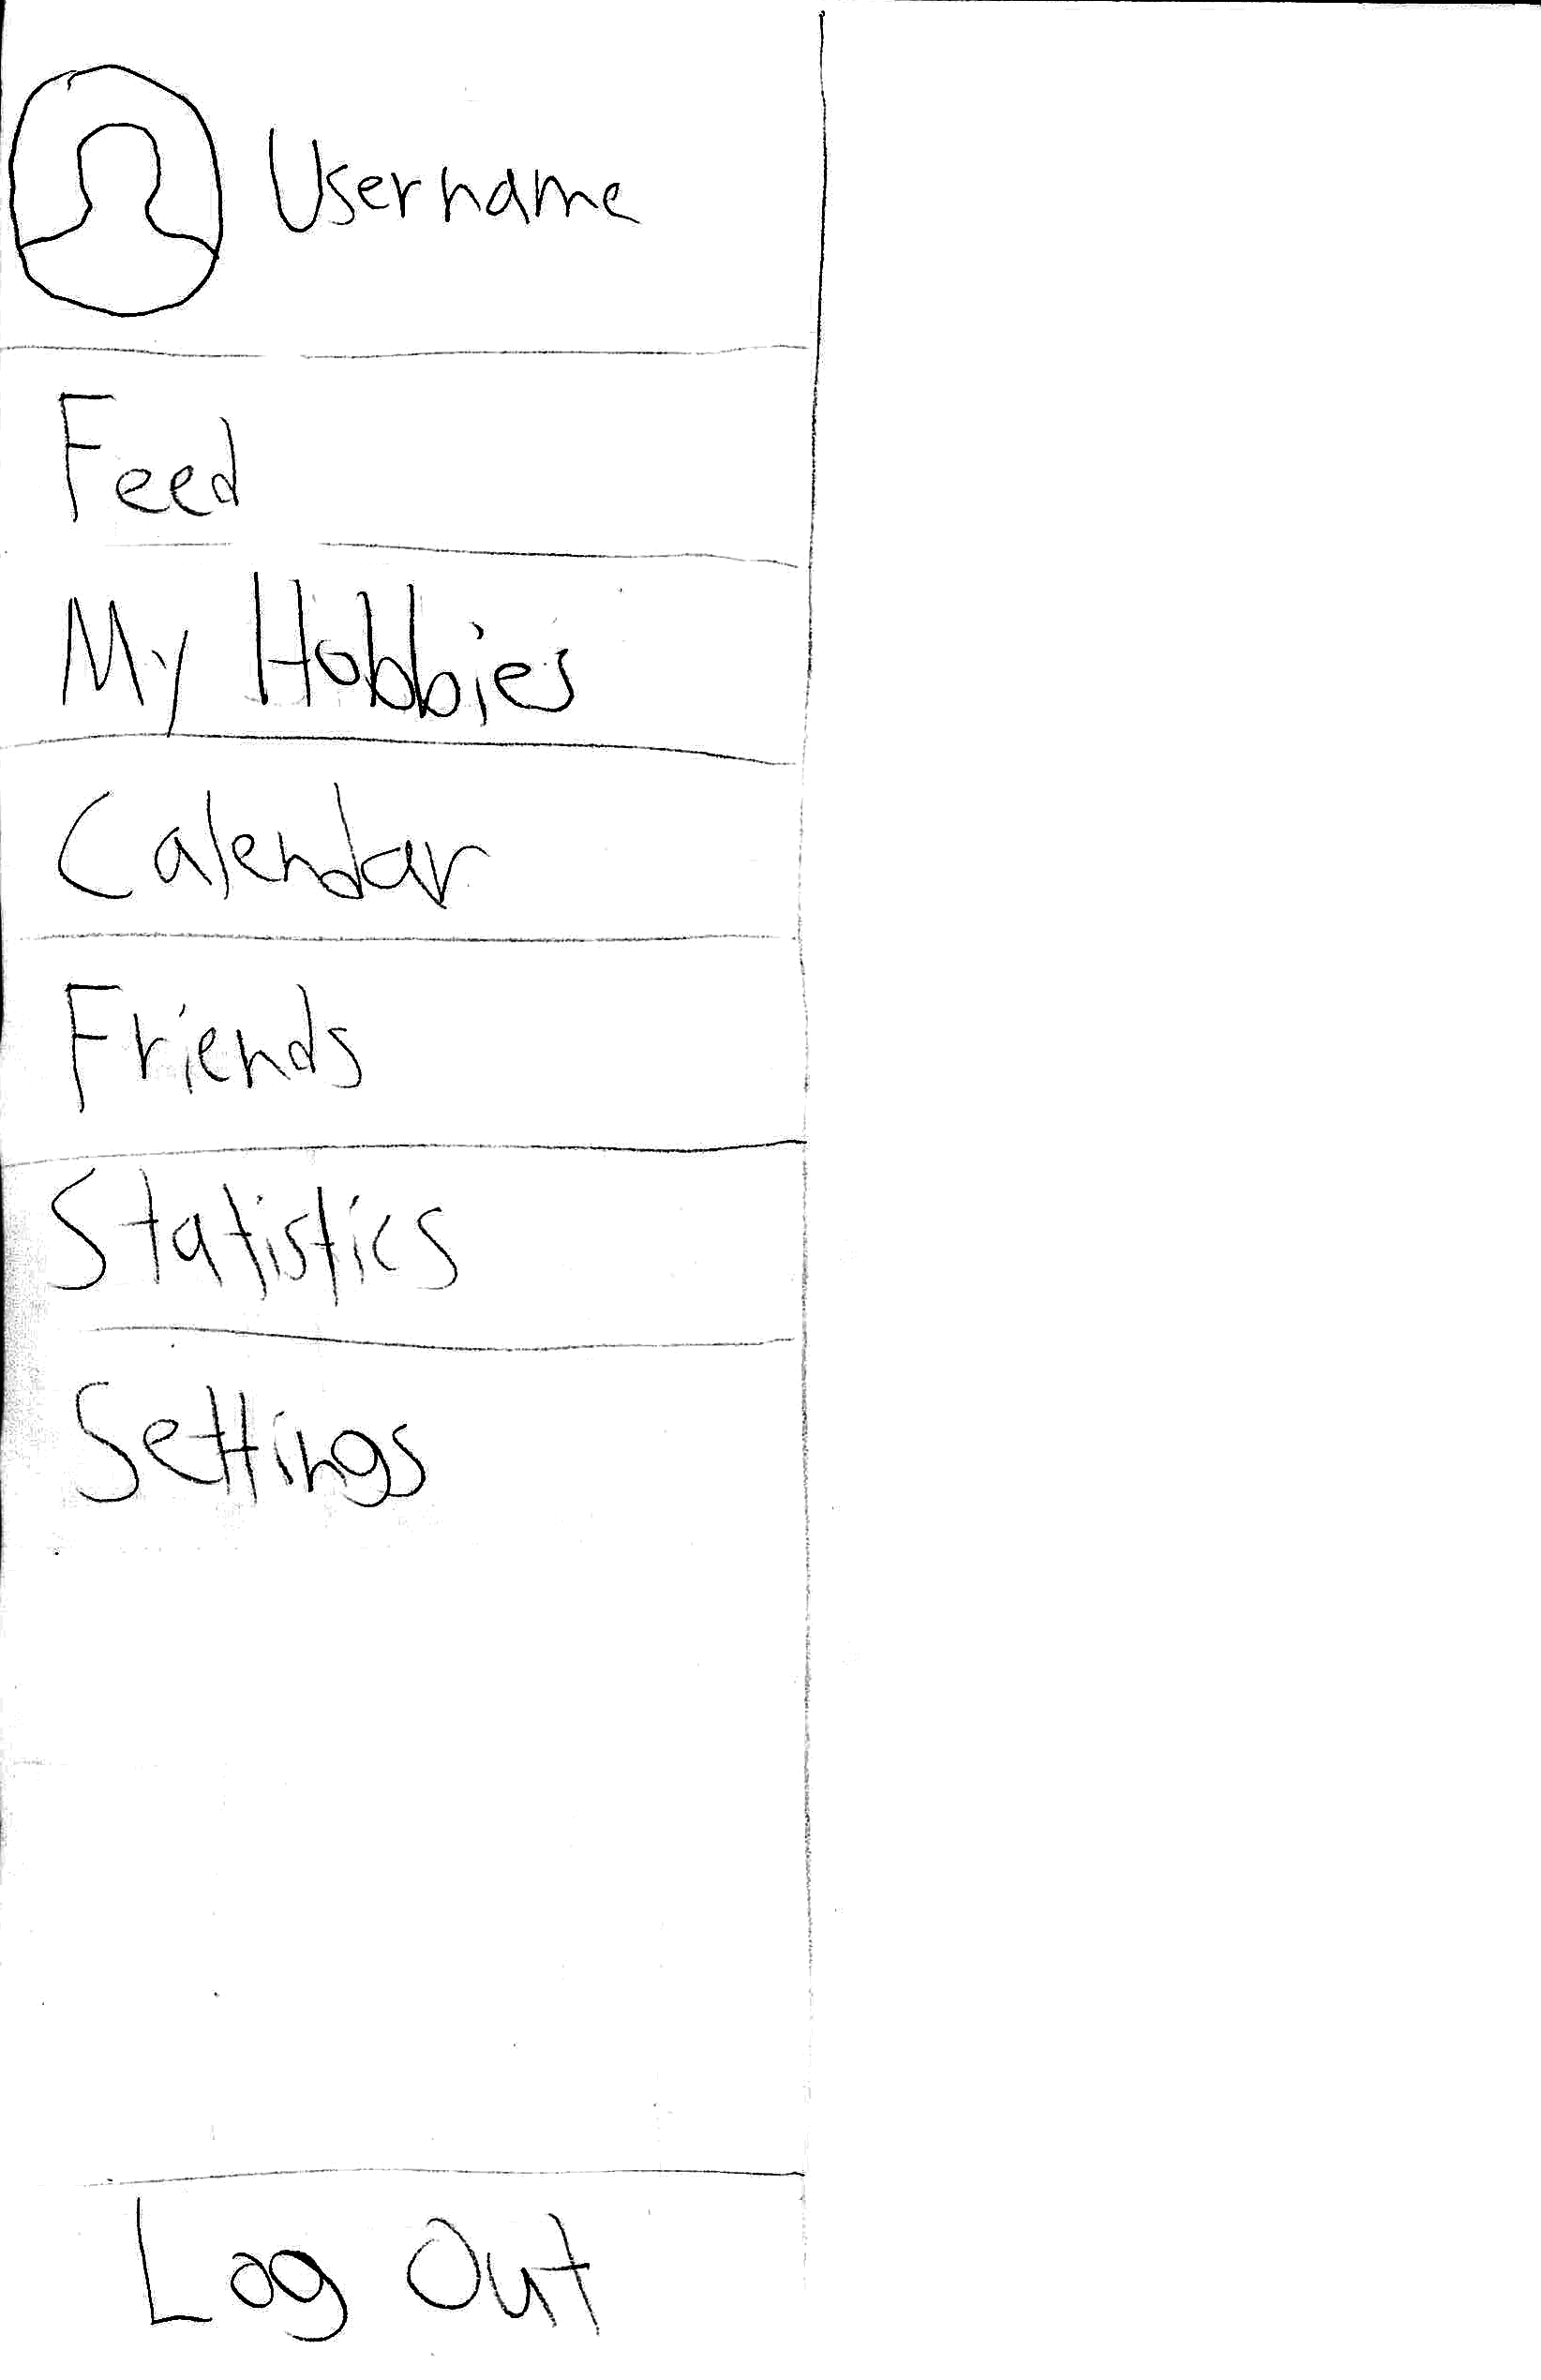 Username
Feed
My Hobbies
Calendar
Friends
Statistics
Settings
Log Out